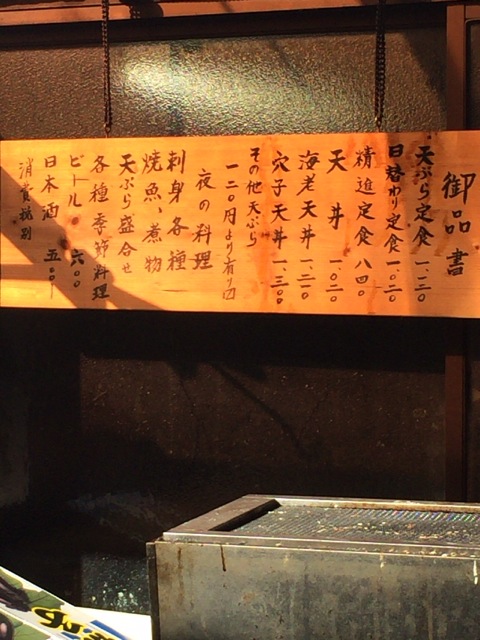 御品書
天ぷら定食 一、一二〇
日替わり定食 一、〇二〇
精進定食 八四〇
天丼 一、〇二〇
海老天丼 一、三二〇
穴子天丼 一、三〇〇
その他天ぷら
一二〇円より有り〼
夜の料理
刺身各種
焼魚、煮物
天ぷら盛合せ
各種季節料理
ビール 六〇〇
日本酒 五〇〇ー
消費税別